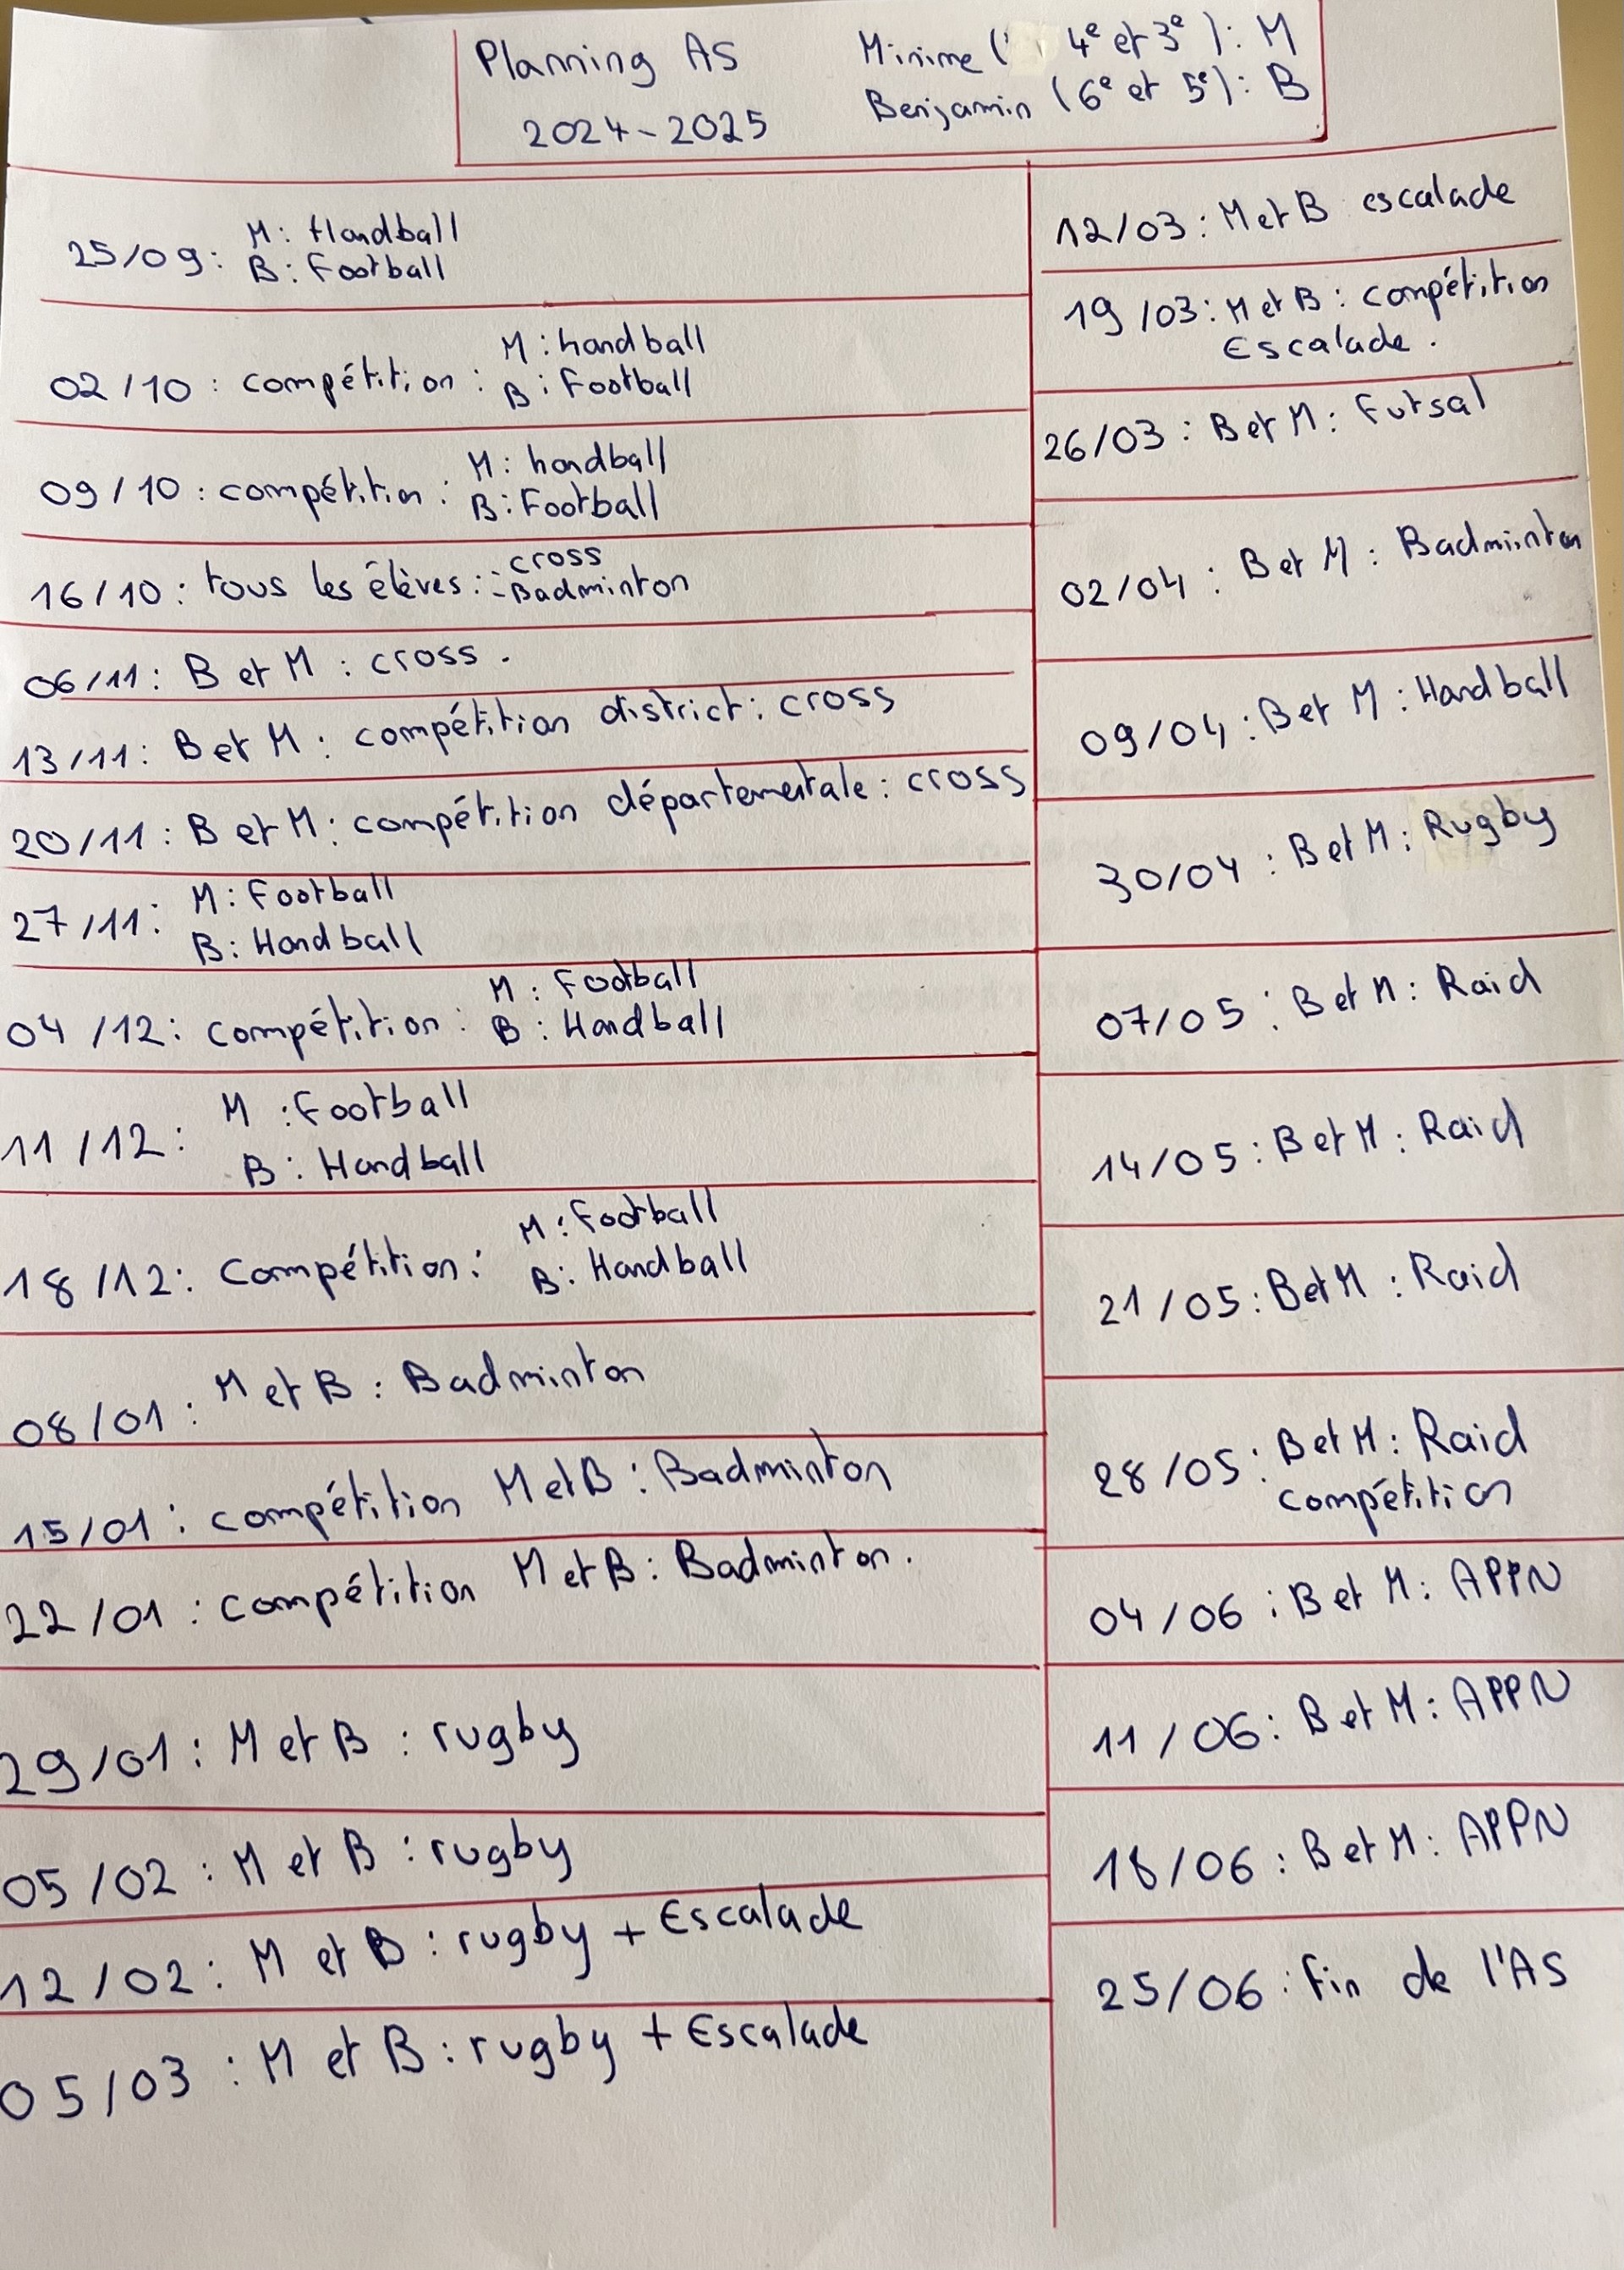 Planning AS
2024-2025
Minime ( 4e et 3e ) : M
Benjamin (6e et 5e) : B
25/09 : M : Handball
B : Football
02/10 : compétition : M : handball
B : Football
09/10 : compétition : M : handball
B : Football
16/10 : tous les élèves : - cross
- Badminton
06/11 : B et M : cross.
13/11 : B et M : compétition district : cross
20/11 : B et M : compétition départementale : cross
27/11 : M : Football
B : Handball
04/12 : compétition : M : Football
B : Handball
11/12 : M : Football
B : Handball
18/12 : Compétition : M : Football
B : Handball
08/01 : M et B : Badminton
15/01 : compétition M et B : Badminton
22/01 : compétition M et B : Badminton.
29/01 : M et B : rugby
05/02 : M et B : rugby
12/02 : M et B : rugby + Escalade
05/03 : M et B : rugby + Escalade
12/03 : M et B escalade
19/03 : M et B : compétition
Escalade.
26/03 : B et M : Futsal
02/04 : B et M : Badminton
09/04 : B et M : Handball
30/04 : B et M : Rugby
07/05 : B et M : Raid
14/05 : B et M : Raid
21/05 : B et M : Raid
28/05 : B et M : Raid
compétition
04/06 : B et M : APPN
11/06 : B et M : APPN
18/06 : B et M : APPN
25/06 : Fin de l'AS